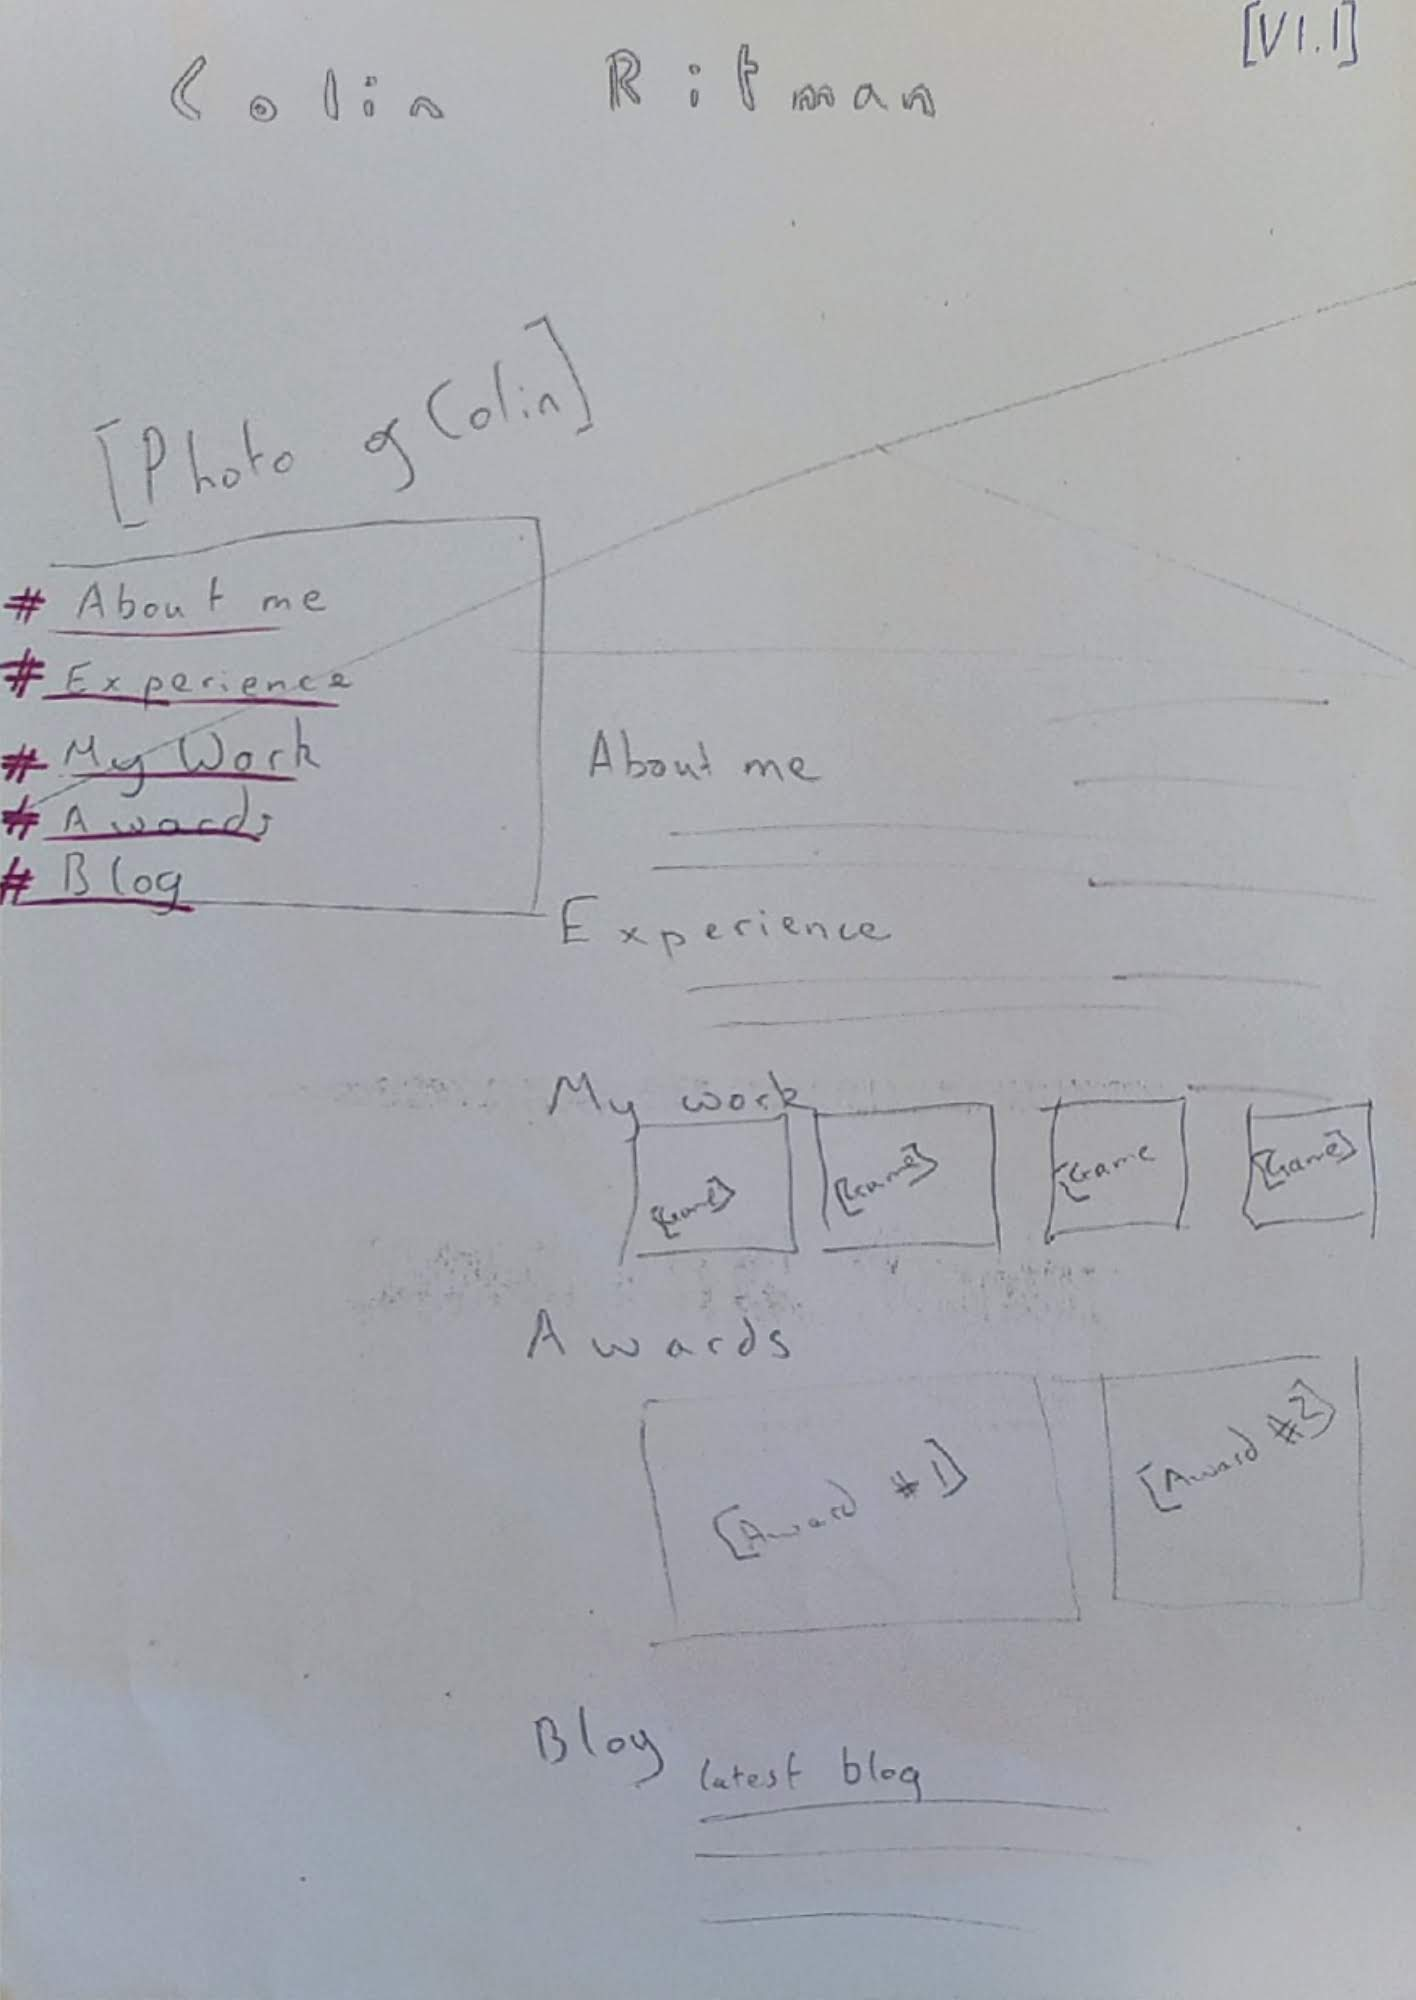 [V1.1]
Colin Ritman
[Photo of Colin]
# About me
# Experience
# My Work
# Awards
# Blog
About me
Experience
My work
[Game] [Game] [Game [Game]
Awards
[Award #1] [Award #2]
Blog
latest blog